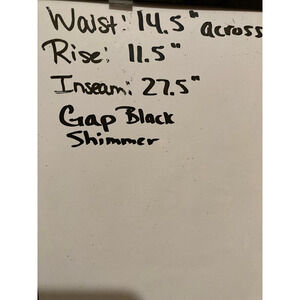 Waist: 14.5" across
Rise: 11.5"
Inseam: 27.5"
Gap Black
Shimmer